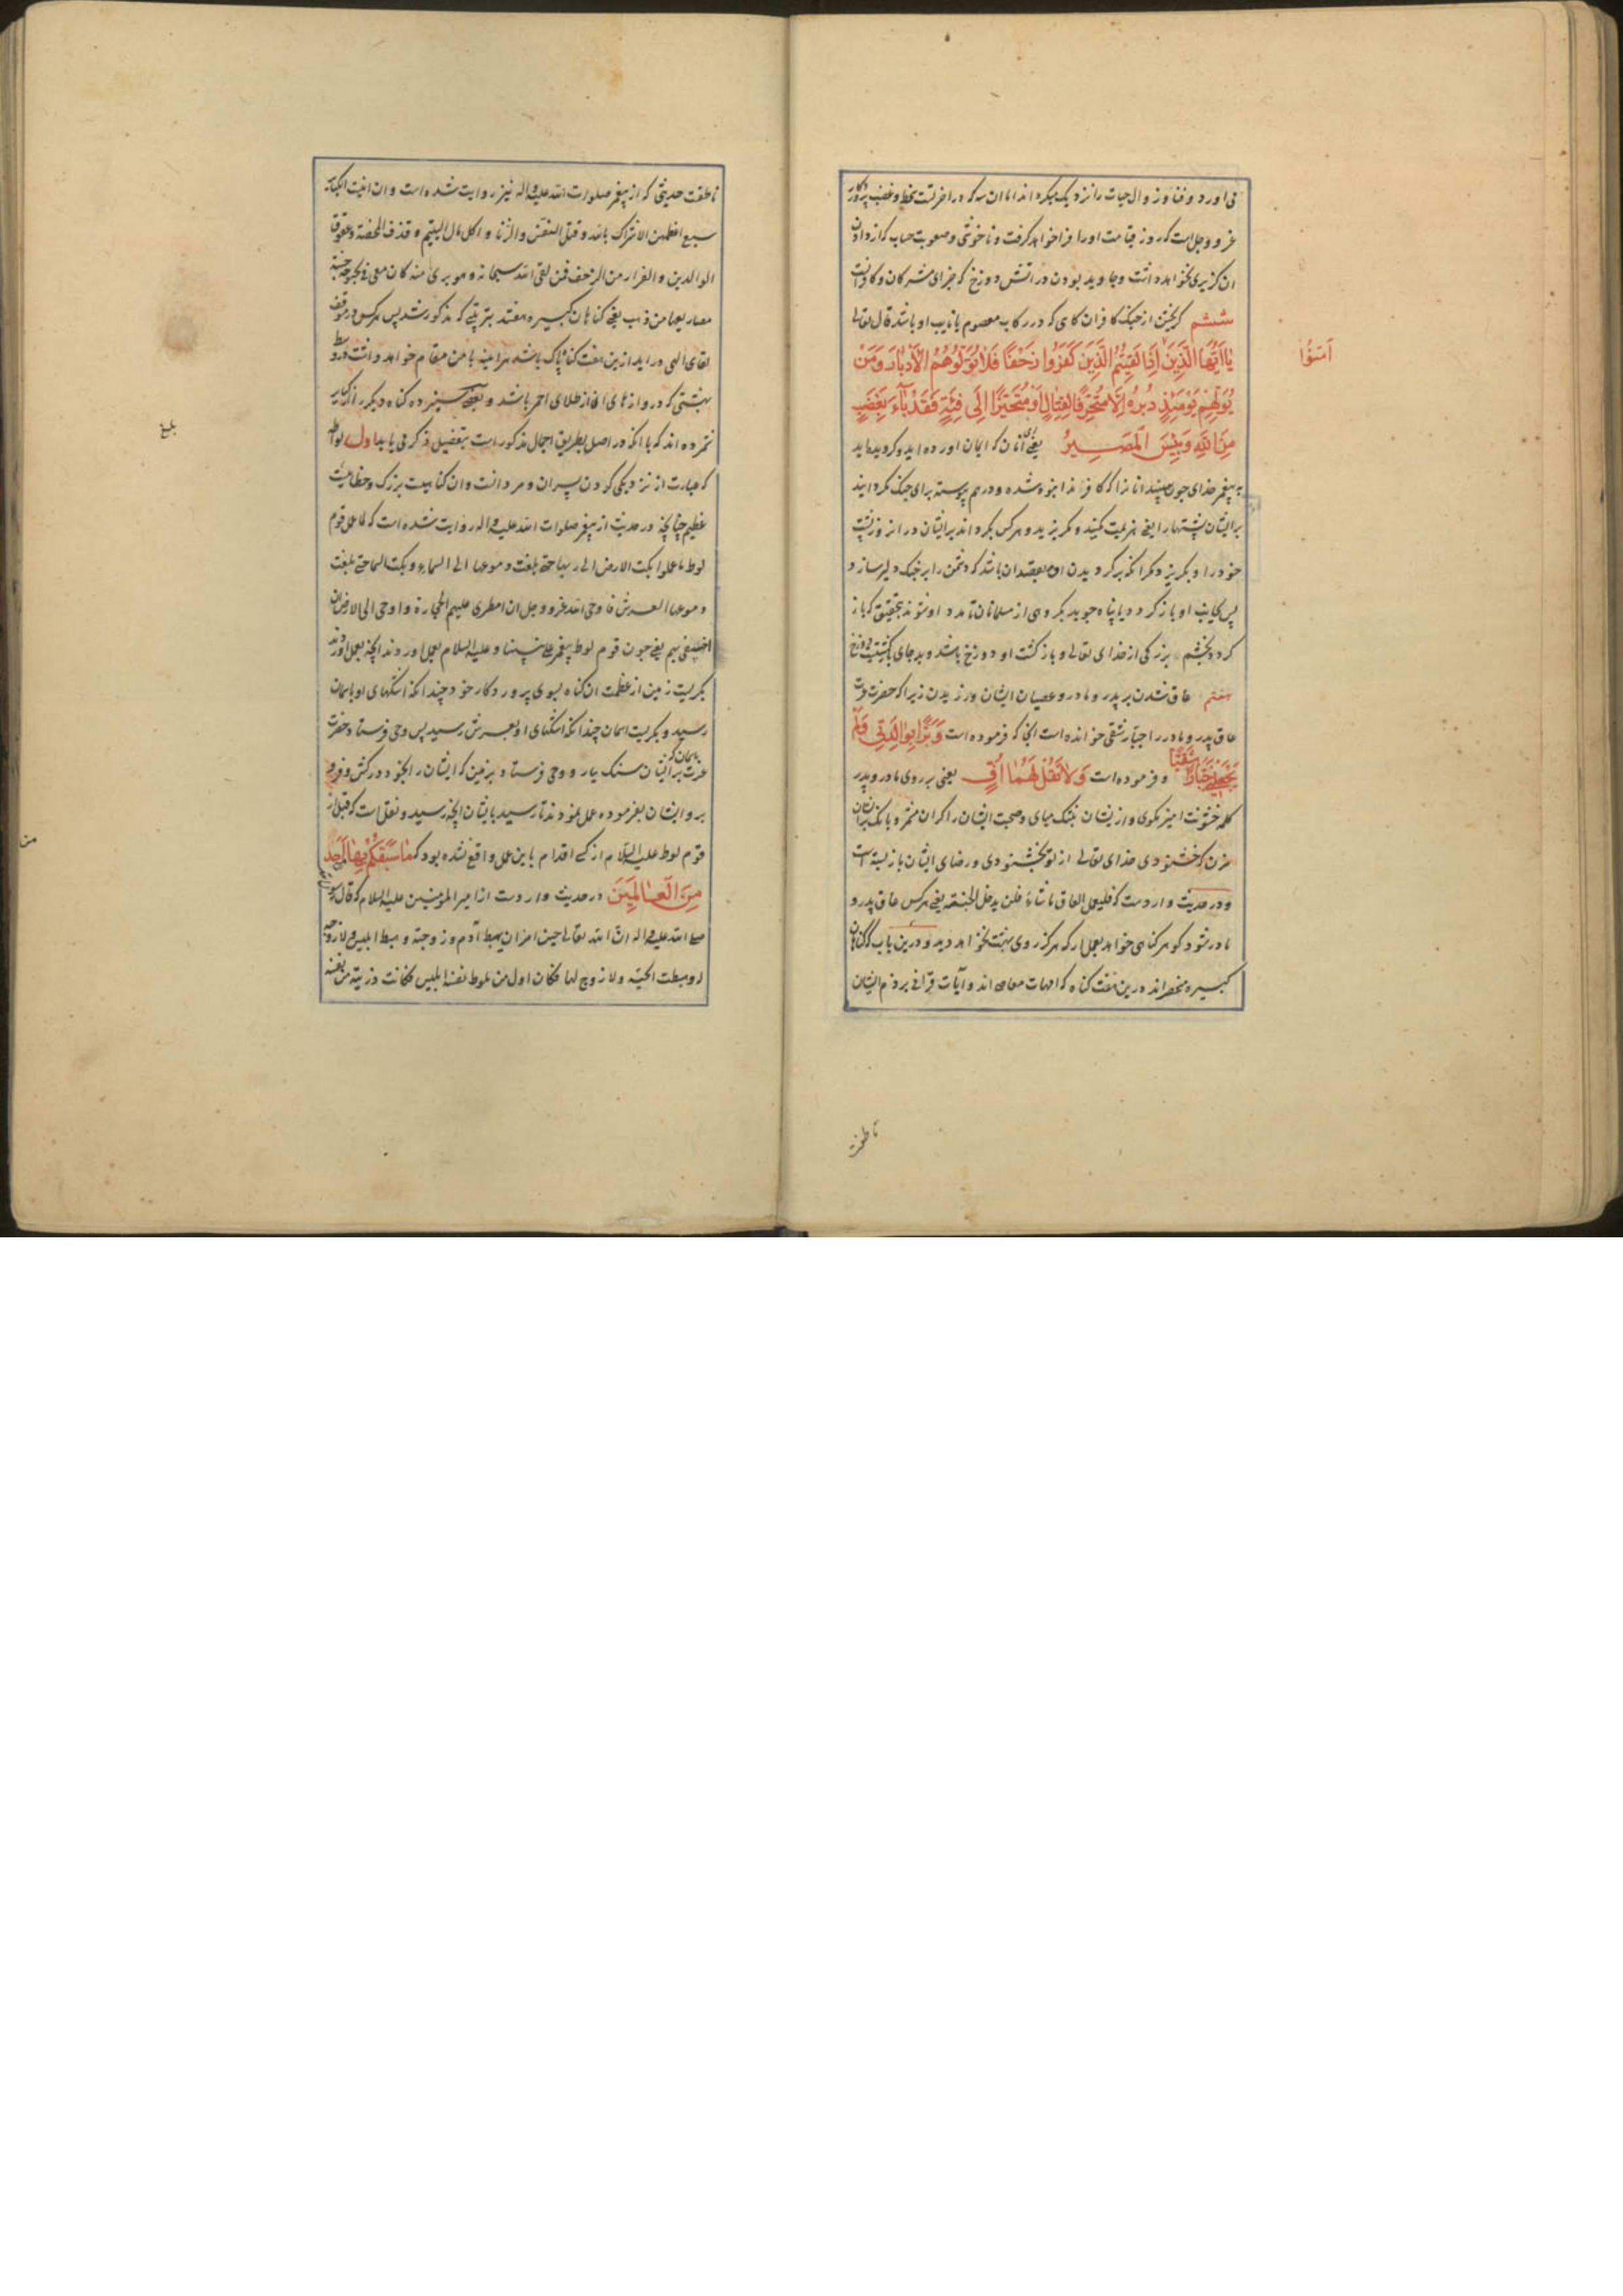 می‌اورد و فنا و زوال حیات را نزدیک میکرداند اما ان سه که در اخرتست سخط و غضب پروردکار
عز و وجل است که روز قیامت او را فرا خواهد کرفت و ناخوشی و صعوبت حساب که از دادن
ان کزیری نخواهد داشت و جاوید بودن در اتش دوزخ که جزای مشرکان و کافرانست
ششم کریختن از جنک کافران کاهی که در رکاب معصوم یا نایب او باشد قال تعالی
یا اَیُّهَا الَّذِینَ اِذَا لَقِیتُمُ الَّذِینَ کَفَرُوا زَحْفًا فَلَا تُوَلُّوهُمُ الْاَدْبَارَ وَمَنْ
آمَنُوا
یُوَلِّهِمْ یَوْمَئِذٍ دُبُرَهُ اِلَّا مُتَحَرِّفًا لِقِتَالٍ اَوْ مُتَحَیِّزًا اِلَی فِئَةٍ فَقَدْ بَآءَ بِغَضَبٍ
مِنَ اللَّهِ وَبِئْسَ الْمَصِیرُ یعنی ای انان که ایمان اورده اید و کرویده‌اید
به پیغمبر خدای جون ببینید انانرا که کافرند انبوه شده و درهم پیوسته برای جنک مکردانید
بر ایشان پشتهارا یعنی هزیمت مکنید و مکریزید و هرکس بکرداند بر ایشان در ان روز پشت
خود را و بکریزد مکر انکه برکردیدن او بقصد ان باشد که دشمن را بر جنک دلیر سازد و
پس بجانب او باز کردد یا پناه جوید بکروهی از مسلمانان تا مدد او شوند بتحقیق که باز
کردد بخشم بزرکی از خدای تعالی و بازکشت او دوزخ باشد و بد جای بازکشتیست دوزخ
هفتم عاق شدن بر پدر و مادر و عصیان ایشان ورزیدن زیرا که حضرت عزت
عاق پدر و مادر را جبار شقی خوانده است انجا که فرموده است وَبَرًّا بِوَالِدَتِی وَلَمْ
یَجْعَلْنِی جَبَّارًا شَقِیًّا و فرموده است وَلَا تَقُلْ لَهُمَا اُفٍّ یعنی بر روی مادر و پدر
کلمه خشونت امیز مکوی و از ایشان بتنک میای و صحبت ایشان را کران مشمر و بانک بر ایشان
مزن که خشنودی خدای تعالی از تو بخشنودی و رضای ایشان باز بسته است
و در حدیث واردست که فلیعمل العاق ما شاء فلن یدخل الجنة یعنی هرکس عاق پدر و
مادر شود کو هر کناهی خواهد بعمل ار که هرکز روی بهشت نخواهد دید و درین باب که کناهان
کبیره منحصراند درین هفت کناه که امهات معاصی‌اند و آیات قرانی بر ذم ایشان
ناطقست
ناطقست حدیثی که از پیغمبر صلوات الله علیه و اله نیز روایت شده است و ان اینست الکبائر
سبع اعظمهن الاشراک بالله و قتل النفس و الزنا و اکل مال الیتیم و قذف المحصنة و عقوق
الوالدین و الفرار من الزحف فمن لقی الله سبحانه و هو بریء منهن کان معی فی بحبوحة جنة
مصاریعها من ذهب یعنی کناهان کبیره هفتند بترتیبی که مذکور شد پس هرکس در موقف
لقای الهی در اید ازین هفت کناه پاک باشد هراینه با من مقام خواهد داشت در وسط
بهشتی که دروازهای ان از طلای احمر باشد و بعضی سیزده کناه دیکر را از کبایر
شمرده‌اند که با انکه در اصل بطریق اجمال مذکور است بتفصیل ذکر می‌یابد اول لواطه
که عبارت از نزدیکی کردن پسران و مردانست و ان کناهیست بزرک و خطائیست
عظیم چنانچه در حدیث از پیغمبر صلوات الله علیه و اله روایت شده است که لما عمل قوم
لوط ما عملوا بکت الارض الی ربها حتی بلغت دموعها الی السماء و بکت السماء حتی بلغت
دموعها العرش فاوحی الله عز و وجل ان امطری علیهم الحجارة و اوحی الی الارض ان
اخسفی بهم یعنی جون قوم لوط پیغمبر علی نبینا و علیه السلام بعمل اوردند انچه بعمل اوردند
بکریست زمین از عظمت ان کناه بسوی پروردکار خود چندانکه اشکهای او باسمان
رسید و بکریست اسمان چندانکه اشکهای او بعرش رسید پس وحی فرستاد حضرت
عزت باسمان که بر ایشان سنک ببار و وحی فرستاد بزمین که ایشان را بخود درکش و فرو
بر و ایشان بفرموده عمل نمودند تا رسید بایشان انچه رسید و نقلست که قبل از
قوم لوط علیه السلام از کسی اقدام باین عمل واقع نشده بود که مَا سَبَقَکُمْ بِهَا مِنْ اَحَدٍ
مِنَ الْعَالَمِینَ در حدیث واردست از امیر المؤمنین علیه السلام که قال رسول الله
صلی الله علیه و اله ان الله تعالی حین امر ان یهبط آدم و زوجته و هبط ابلیس و لا زوجة
له و هبطت الحیة و لا زوج لها فکان اول من یلوط نفسه ابلیس فکانت ذریته من نفسه
بلغ
من